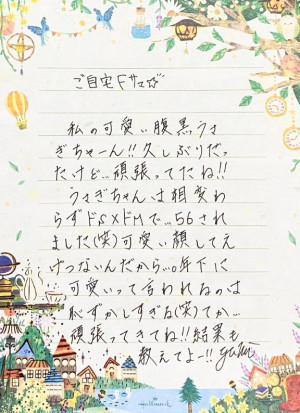 ご自宅Fサマ☆
私の可愛い腹黒うさ
ぎちゃーん!!久しぶりだっ
たけど…頑張ってたね!!
うさぎちゃんは相変わ
らずドS×ドMで…56され
ました(笑)可愛い顔してえ
げつないんだから…。年下に
可愛いって言われるのは
恥ずかしすぎる(笑)てか…
頑張ってきてね!!結果も
教えてよー!!
Hallmark